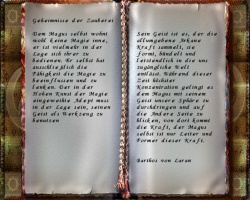 Geheimnisse der Zauberei
Dem Magus selbst wohnt
wohl keine Magie inne,
er ist vielmehr in der
Lage sich ihrer zu
bedienen. Er selbst hat
ausschließlich die
Fähigkeit die Magie zu
beeinflussen und zu
lenken. Der in der
Hohen Kunst der Magie
eingeweihte Adept muss
in der Lage sein, seinen
Geist als Werkzeug zu
benutzen
Sein Geist ist es, der die
allumgebene Arkane
Kraft sammelt, sie
formt, bündelt und
letztendlich in die uns
zugängliche Welt
entlässt. Während dieser
Zeit höchster
Konzentration gelingt es
dem Magus mit seinem
Geist unsere Sphäre zu
durchdringen und auf
die Andere Seite zu
blicken, von dort kommt
die Kraft, der Magus
selbst ist nur Leiter und
Former dieser Kraft.
Barthos von Laran